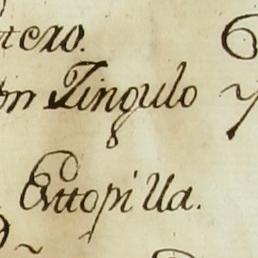 tero.
on Zingulo y
Esttopilla.